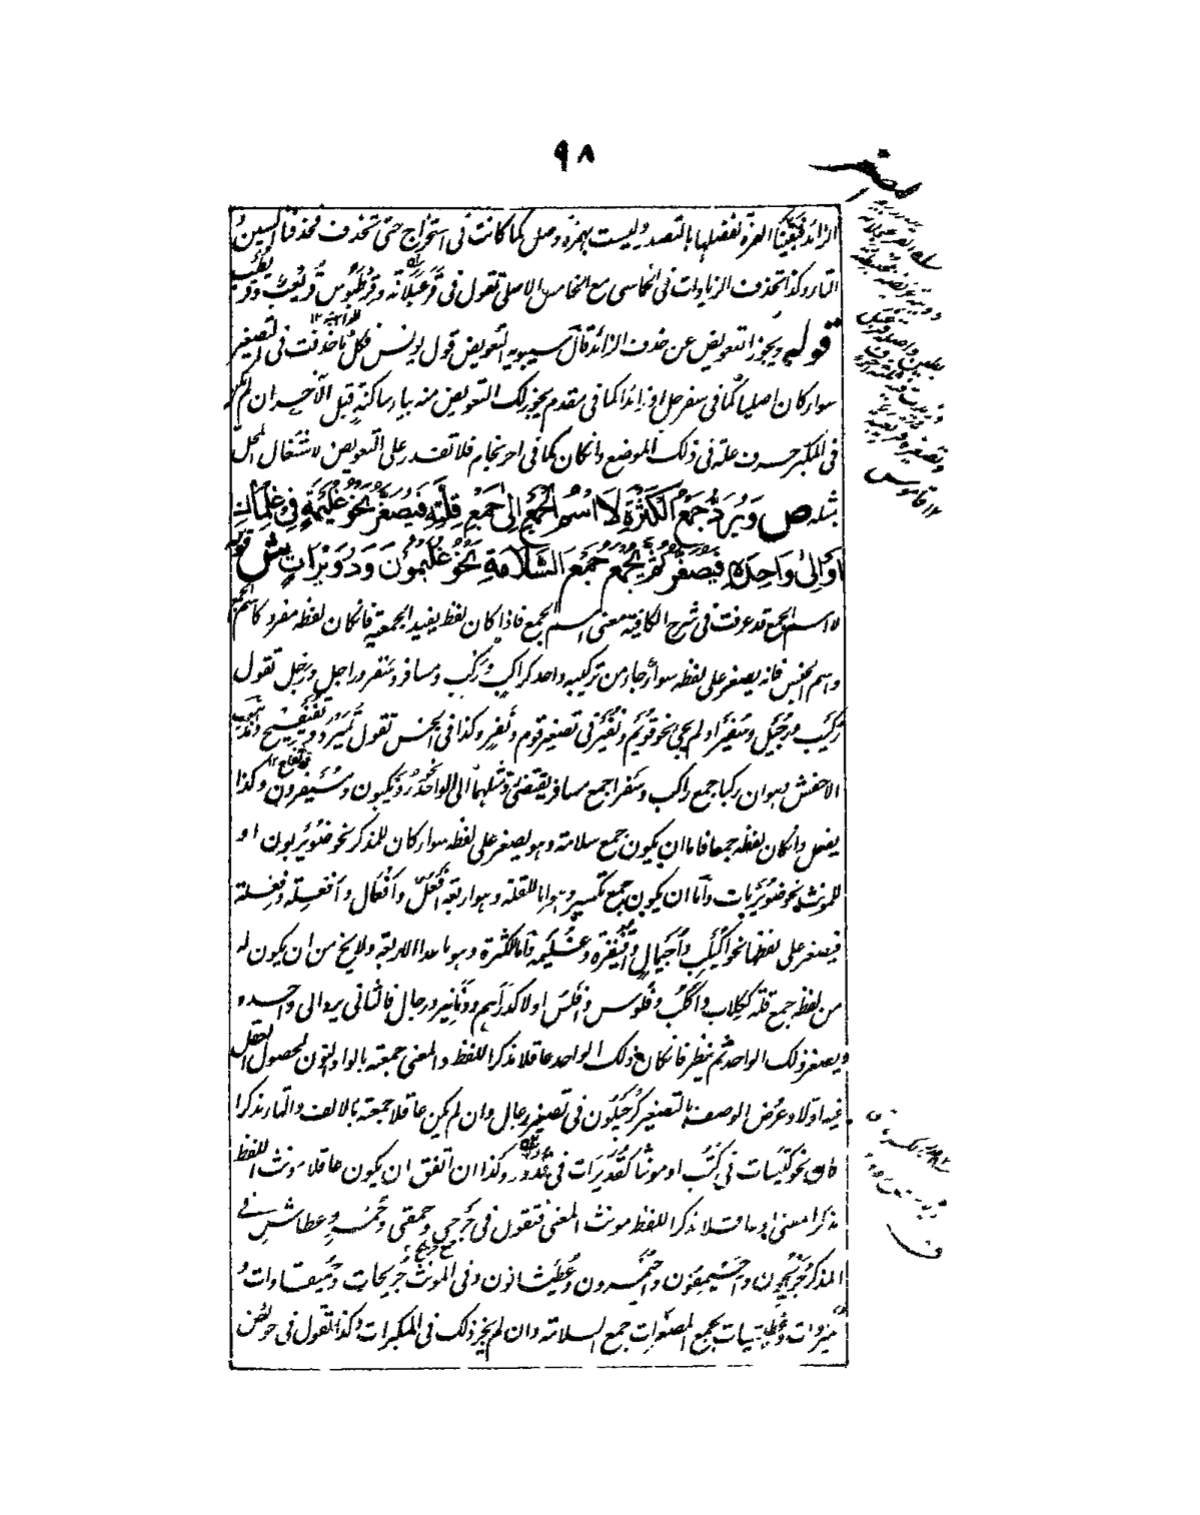 ٩٨
المصغر
الزائد فبقينا الهمزة لفضلها بالتصدر وليست بهمزة وصل كما كانت في استخراج حتى تحذف فحذفنا السين
التاء وكذا تحذف الزيادات في الخماسي مع الخامس الاصلي تقول في قرعبلانة وقرطبوس قريعب وقريطب
قوله ويجوز التعويض عن حذف الزائد قال سيبويه التعويض قول يونس فكل ما حذفت في التصغير
سواء كان اصليا كما في سفرجل او زائدا كما في مقدم يجوز لك التعويض منه بياء ساكنة قبل الآخر ان لم يكن
في المكبر حرف علة في ذلك الموضع وان كان كما في احرنجام فلا تقدر على التعويض لاشتغال المحل
بمثله ص وَيُرَدُّ جَمْعُ الكَثْرَةِ لَا اسْمُ الجَمْعِ إِلى جَمْعِ قِلَّتِهِ فَيُصَغَّرُ نَحْوُ غُلَيْمَةٍ فِي غِلْمَانٍ
اَوْ اِلىٰ وَاحِدِهِ فَيُصَغَّرُ ثُمَّ يُجْمَعُ جَمْعَ السَّلَامَةِ نَحْوُ غُلَيِّمُوْنَ وَدُوَيْرَاتٍ ش قوله
لا اسم الجمع قد عرفت في شرح الكافية معنى اسم الجمع فاذا كان لفظ يفيد الجمعية فان كان لفظه مفرد كاسم الجمع
واسم الجنس فانه يصغر على لفظه سواء جاء من تركيبه واحد كراكب وركب ومسافر وسفر وراجل ورجل تقول
ركيب ورجيل وسفير او لم يجئ نحو قويم ونفير في تصغير قوم ونفر وكذا في الجنس تقول تمير وتفيفيح ومذهب
الاخفش وهو ان ركبا جمع راكب وسفرا جمع مسافر يقتضي رد مثلهما الى الواحد نحو رويكبون ومسيفرون وكذا
يفعل وان كان لفظه جمعا فاما ان يكون جمع سلامة وهو يصغر على لفظه سواء كان للمذكر نحو ضويربون او
للمونث نحو ضويربات واما ان يكون جمع تكسير وهو اما للقلة وهو اربعة أفعل وأفعال وأفعلة وفعلة
فيصغر على لفظه نحو أكيلب وأجيمال وأقيفزة وغليمة واما للكثرة وهو ما عدا الاربعة ولا يخ من ان يكون له
من لفظه جمع قلة ككلاب واكلب وفلوس وافلس اولا كدراهم ودنانير ورجال فالثاني يرد الى واحده
ويصغر ذلك الواحد ثم ينظر فان كان ذلك الواحد عاقلا مذكرا اللفظ والمعنى جمعته بالواو والنون لحصول العقل
فيه اولا وعرض الوصف بالتصغير كرجيلون في تصغير رجال وان لم يكن عاقلا جمعته بالالف والتاء مذكرا
كان نحو كتيبات في كتب او مونثا كقديرات في قدور وكذا ان اتفق ان يكون عاقلا مونث اللفظ
مذكر المعنى او عاقلا مذكر اللفظ مونث المعنى فتقول في جرحى وحمقى وحمر وعطاش في
المذكر جريحون واحيمقون واحيمرون وعطيشانون وفي المونث جريحات وحميقاوات و
حميراوات وعطيشيات بجمع المصغرات جمع السلامة وان لم يجز ذلك في المكبرات وكذا تقول في حوائض